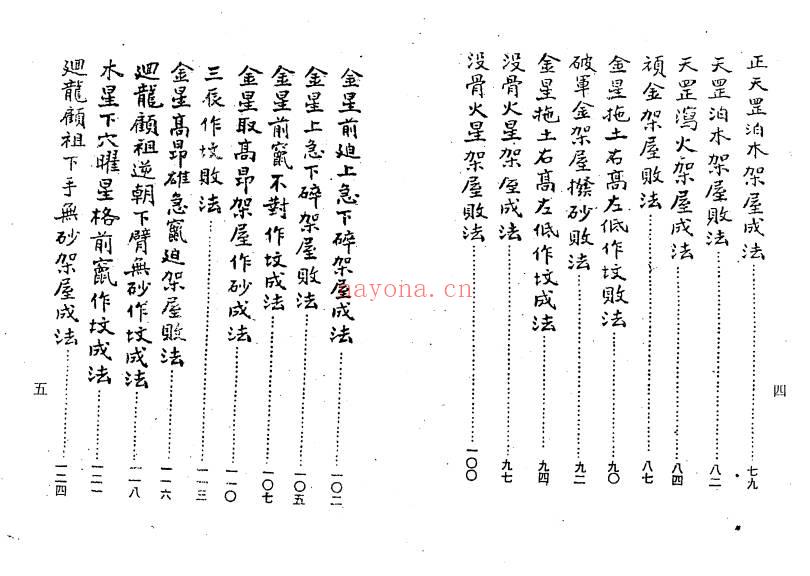 正天罡泊木架屋成法⋯⋯七九
天罡泊木架屋敗法⋯⋯八二
天罡瀉火架屋成法⋯⋯八四
頑金架屋敗法⋯⋯八七
金星拖土右高左低作坟敗法⋯⋯九〇
破軍金架屋撥砂敗法⋯⋯九二
金星拖土右高左低作坟成法⋯⋯九四
沒骨火星架屋成法⋯⋯九七
沒骨火星架屋敗法⋯⋯一〇〇
四
金星前迫上急下碎架屋成法⋯⋯一〇二
金星上急下碎架屋敗法⋯⋯一〇五
金星前竄不對作坟成法⋯⋯一〇七
金星取高昂架屋作砂成法⋯⋯一一〇
三辰作坟敗法⋯⋯一一三
金星高昂雄急竄迫架屋敗法⋯⋯一一六
廻龍顧祖逆朝下臂無砂作坟成法⋯⋯一一八
木星下穴曜星格前竄作坟成法⋯⋯一二一
廻龍顧祖下手無砂架屋成法⋯⋯一二四
五
nayona.cn